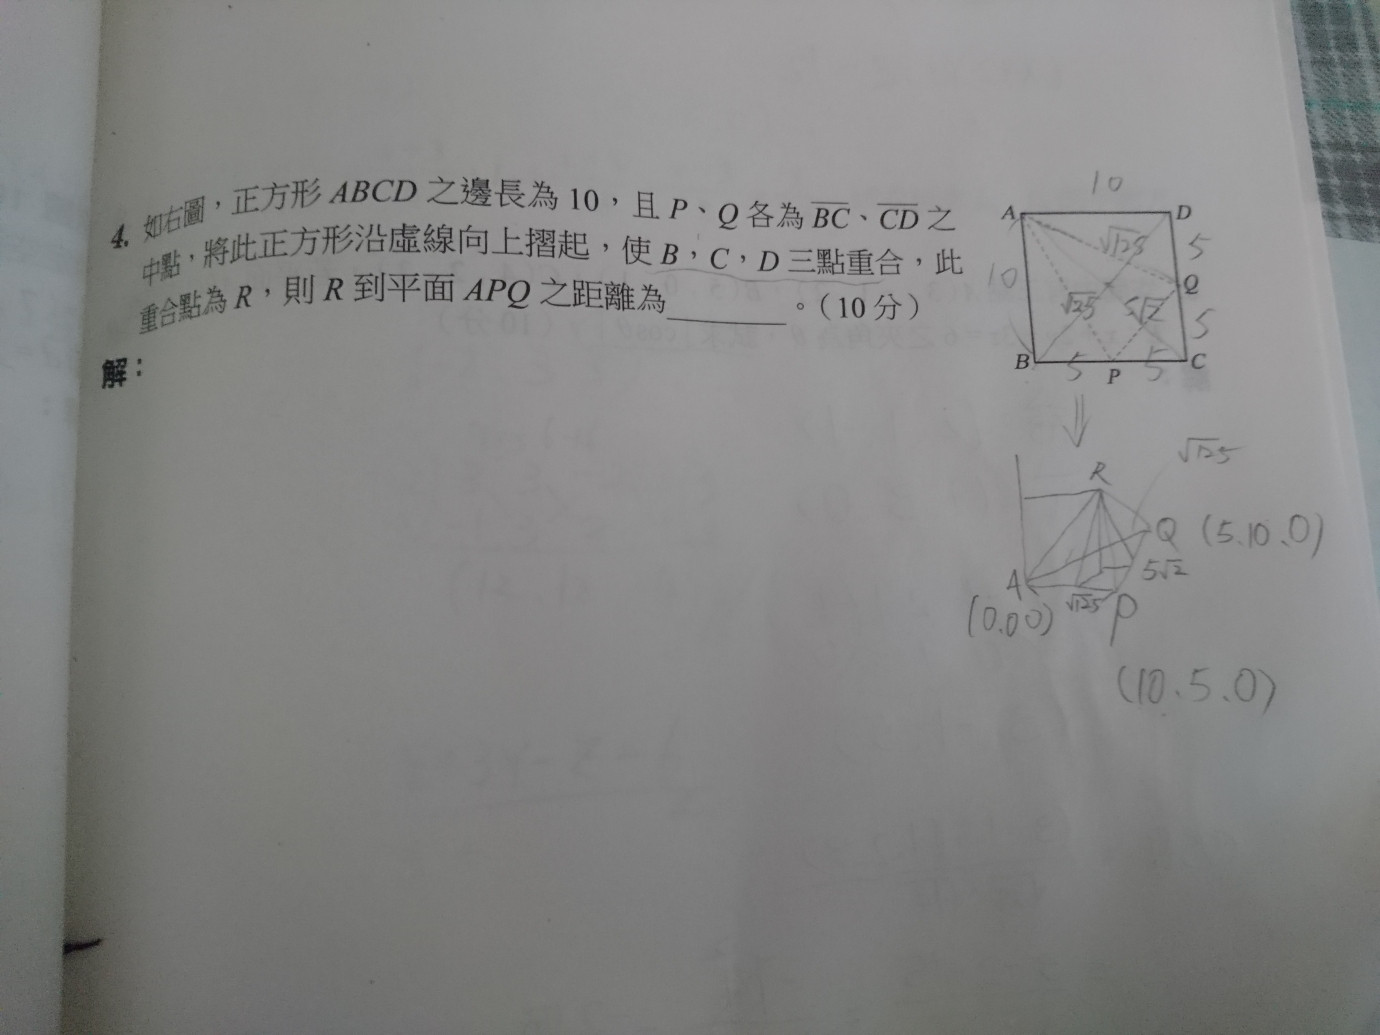 4. 如右圖，正方形 ABCD 之邊長為 10，且 P、Q 各為 BC、CD 之
中點，將此正方形沿虛線向上摺起，使 B，C，D 三點重合，此
重合點為 R，則 R 到平面 APQ 之距離為______。（10 分）
解：
10
A
D
√125
5
10
Q
√125
5√2
5
B
5
P
5
C
R
√125
Q (5.10.0)
A
5√2
(0.00)
√125
P
(10.5.0)